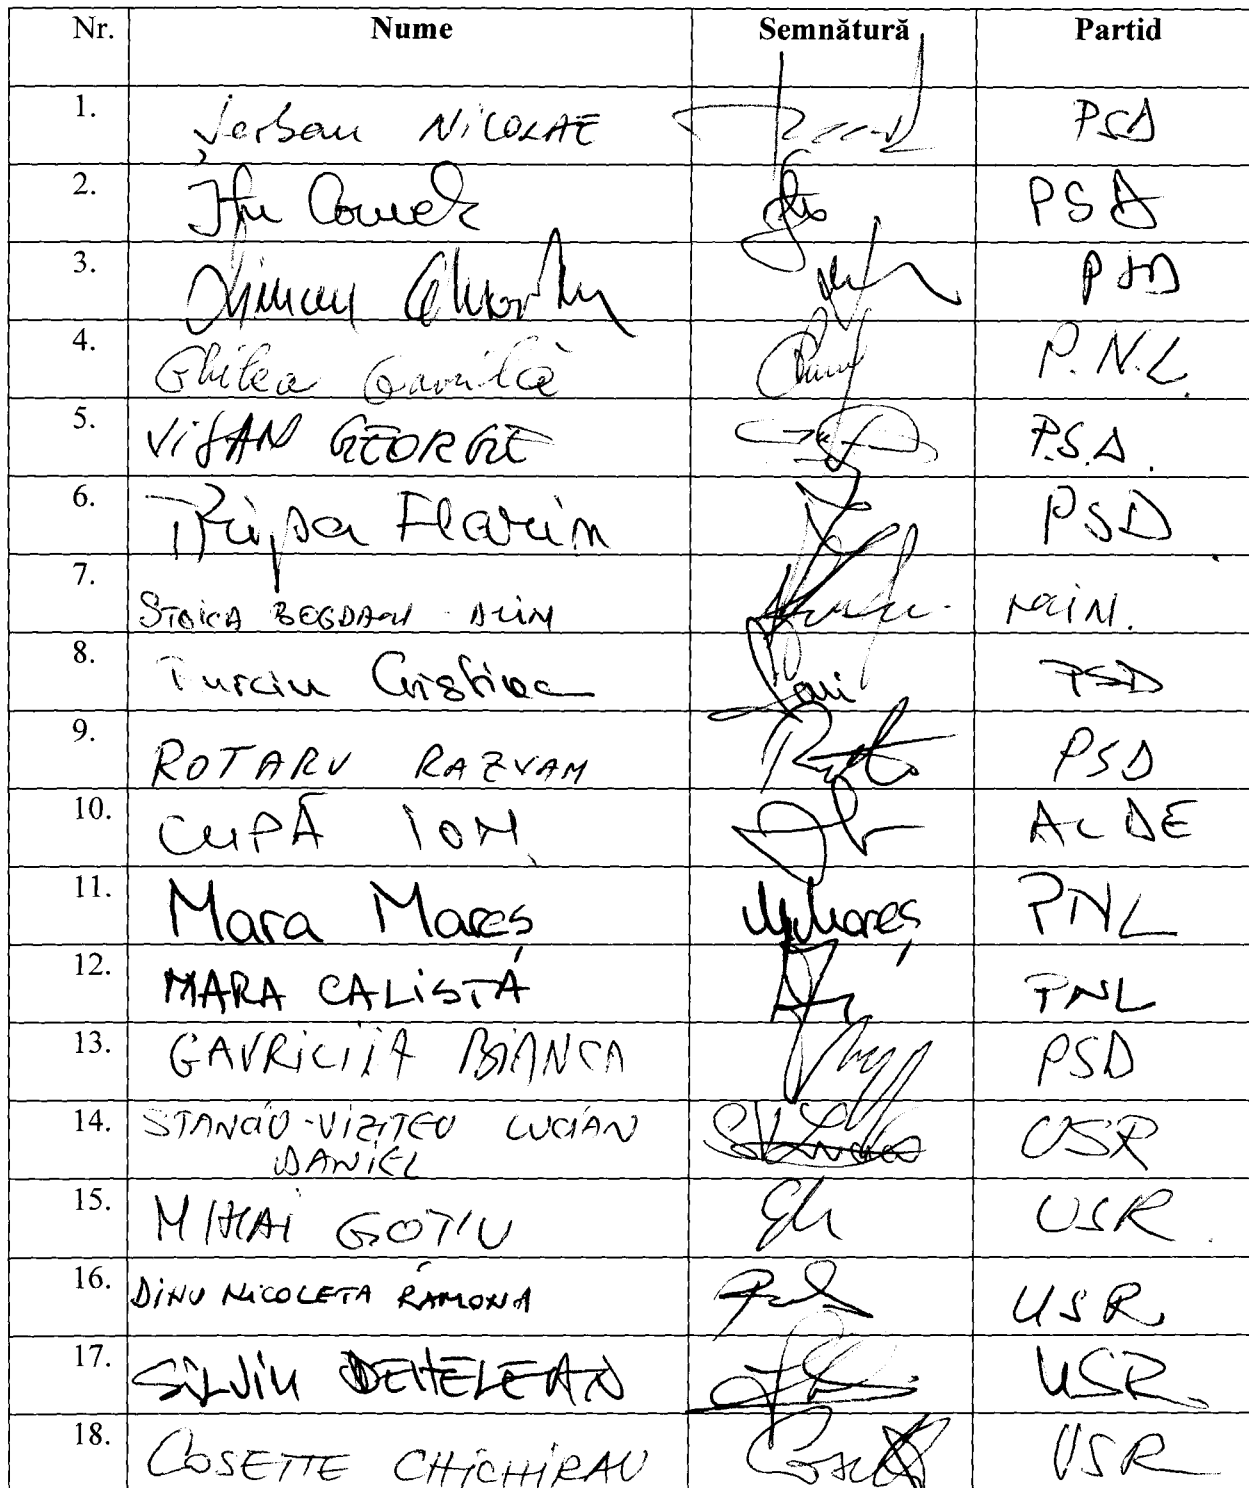 Nr. Nume Semnătură Partid
1. Șerban NICOLAE PSD
2. PSD
3. PSD
4. Ghilea Găvrilă P.N.L.
5. VIȘAN GEORGE P.S.D.
6. Tripa Florin PSD
7. STOICA BEGDAN ALIN
8. Turciu Cristina PSD
9. ROTARU RAZVAN PSD
10. CUPĂ ION ALDE
11. Mara Mareș Mareș PNL
12. MARA CALISTĂ PNL
13. BIANCA PSD
14. STANCIU-VIZITEU LUCIAN USR
DANIEL
15. MIHAI GOȚIU USR
16. DINU NICOLETA RAMONA USR
17. SILVIU DEHELEAN USR
18. COSETTE CHICHIRAU USR